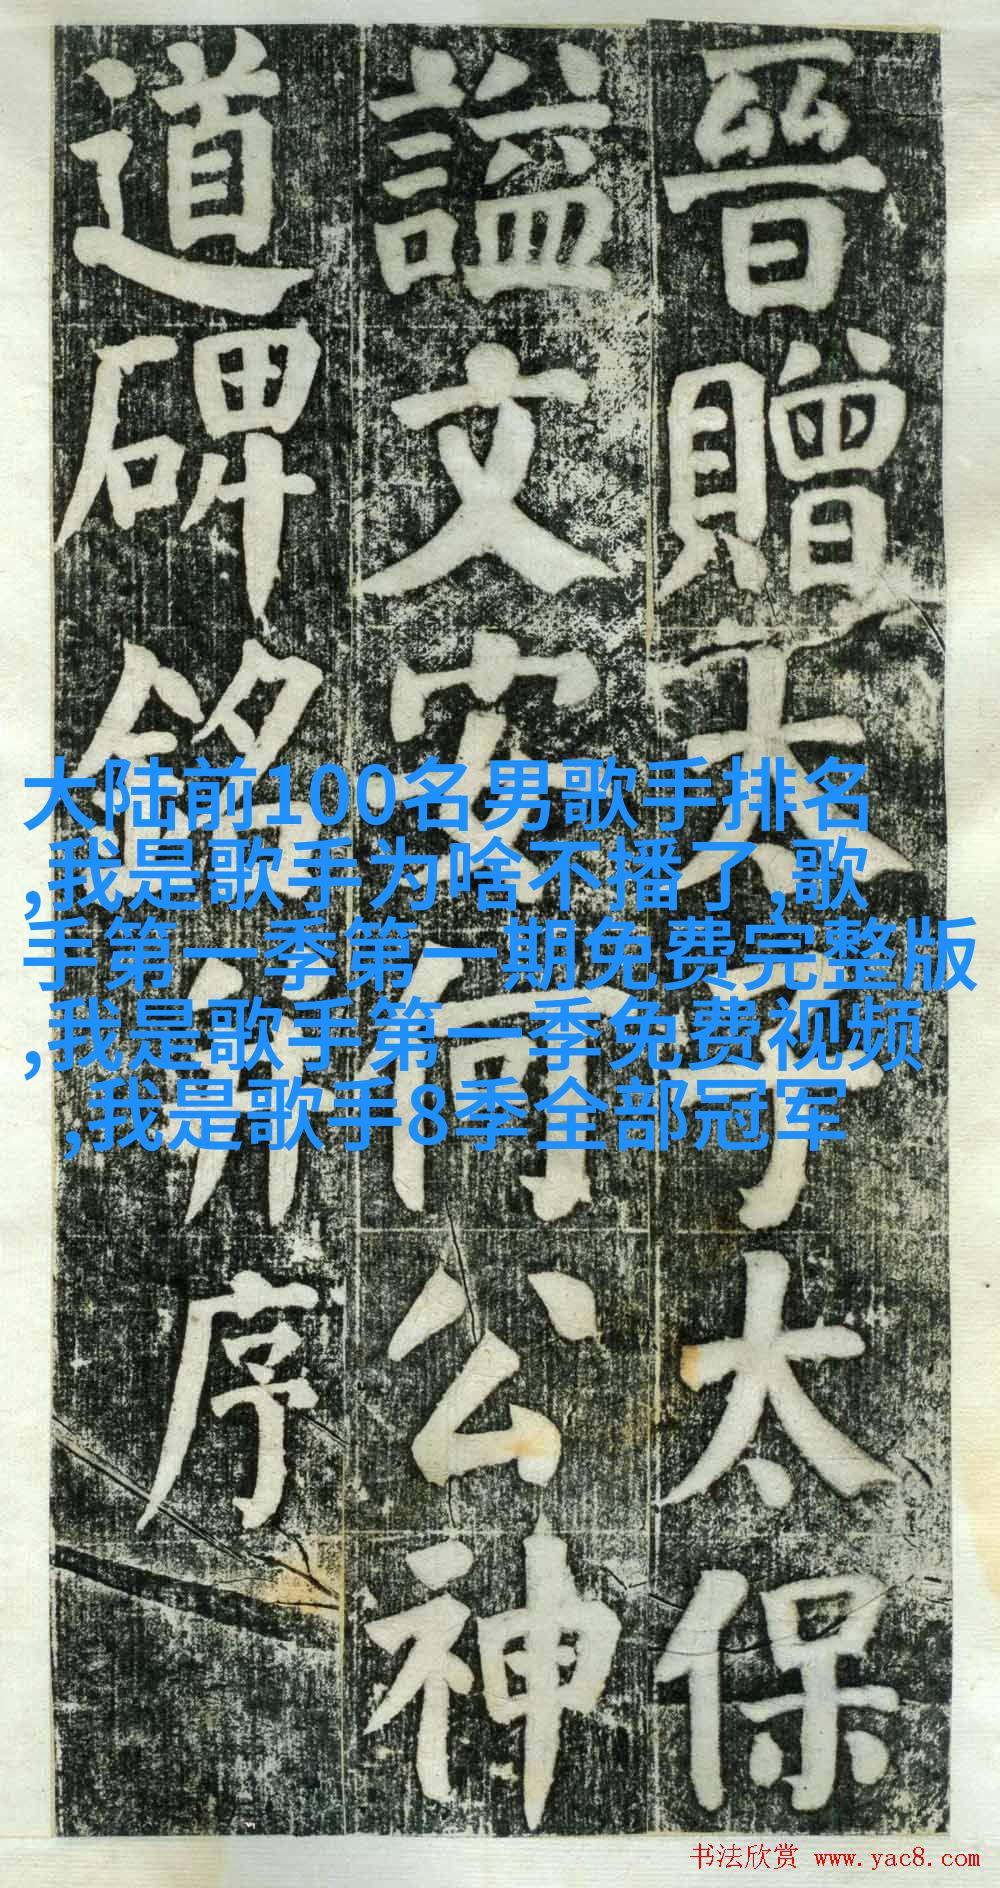 晉贈太子太保
謚文安何公神
道碑銘并序
大陆前100名男歌手排名
,我是歌手为啥不播了,歌
手第一季第一期免费完整版
,我是歌手第一季免费视频
,我是歌手8季全部冠军
书法欣赏 www.yac8.com